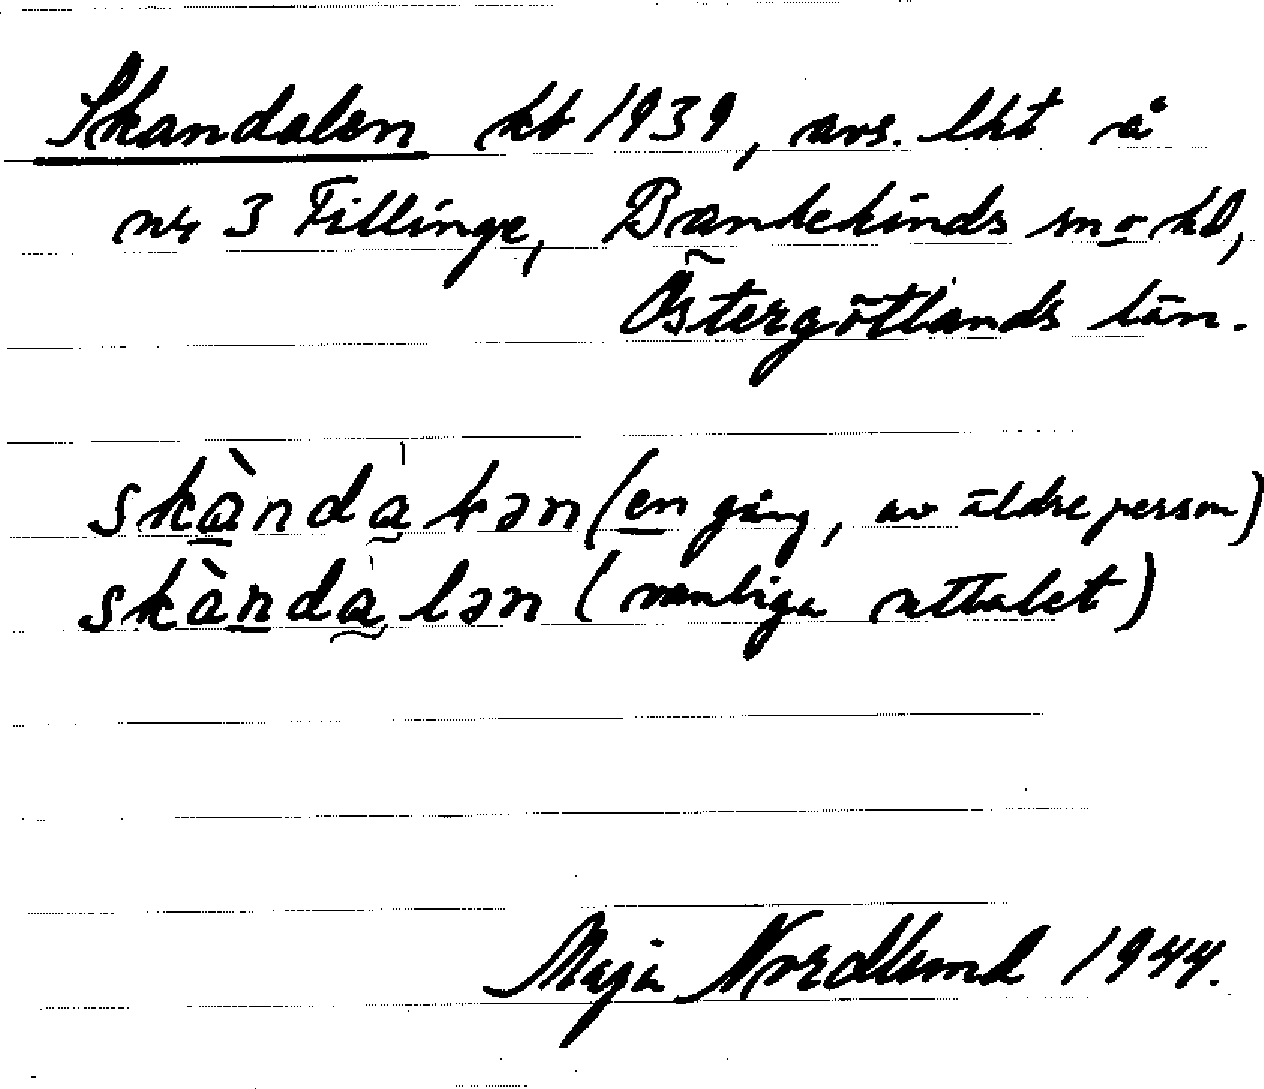 Skandalen kb 1939, avs. lht å
nr 3 Fillinge, Bankekinds sn o hd,
Östergötlands län.
skàndàɫən (en gång, av äldre person)
skàndàlən (vanliga uttalet)
Maja Nordlund 1944.